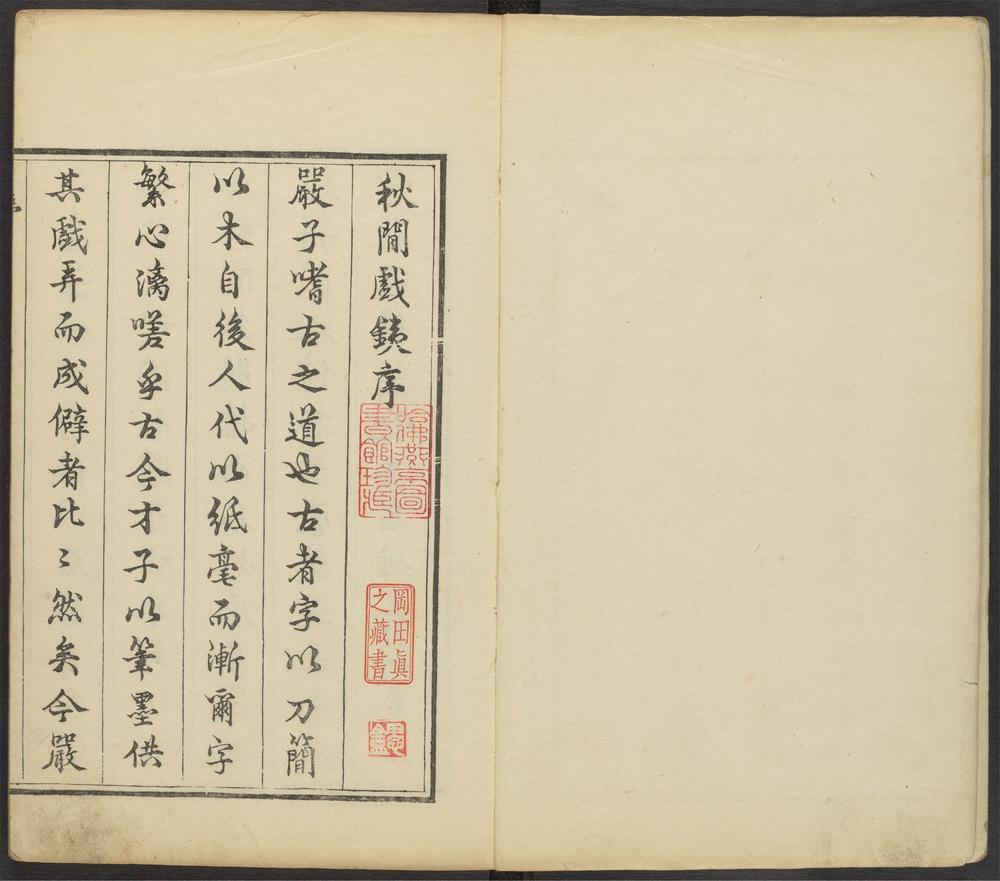 秋閒戲銕序
嚴子嗜古之道也古者字以刀簡
以木自後人代以紙毫而漸爾字
繁心漓嗟乎古今才子以筆墨供
其戲弄而成僻者比〻然矣今嚴
哈佛燕京圖
書館珍藏
岡田眞
之藏書